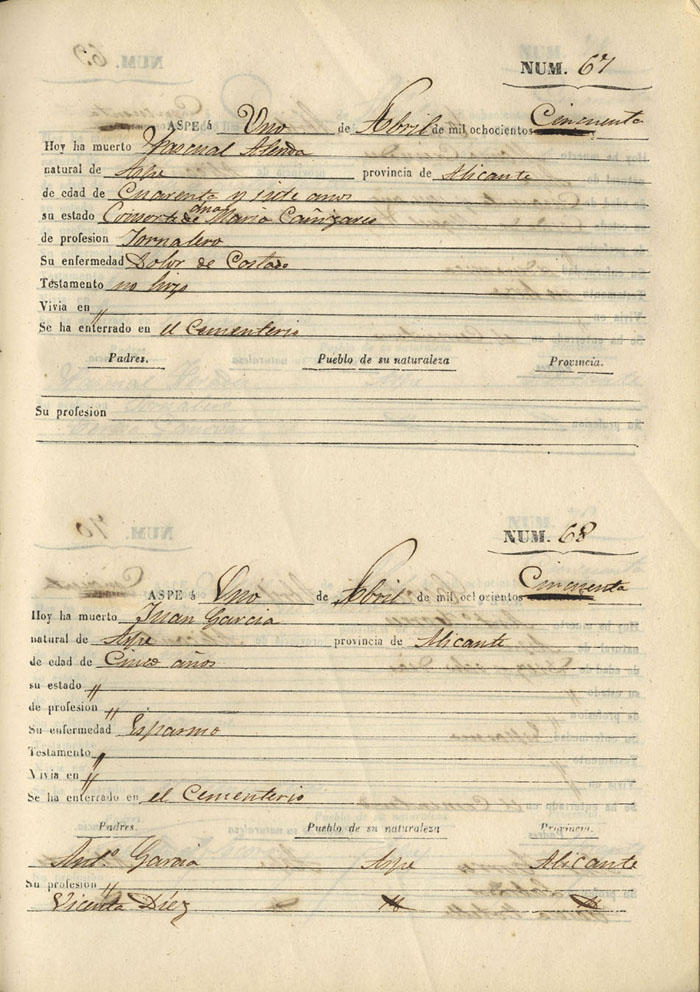 NUM. 67
ASPE á Uno de Abril de mil ochocientos Cincuenta
Hoy ha muerto Pascual
natural de Aspe provincia de Alicante
de edad de Cuarenta y siete años
su estado Consorte de Maria Cañizares
de profesion Jornalero
Su enfermedad Dolor de Costado
Testamento no hizo
Vivia en "
Se ha enterrado en el Cementerio
Padres. Pueblo de su naturaleza Provincia.
Su profesion
NUM. 68
ASPE á Uno de Abril de mil ochocientos Cincuenta
Hoy ha muerto Juan Garcia
natural de Aspe provincia de Alicante
de edad de Cinco años
su estado "
de profesion "
Su enfermedad Espasmo
Testamento "
Vivia en "
Se ha enterrado en el Cementerio
Padres. Pueblo de su naturaleza Provincia.
Antº Garcia Aspe Alicante
Su profesion "
Vicenta Díez